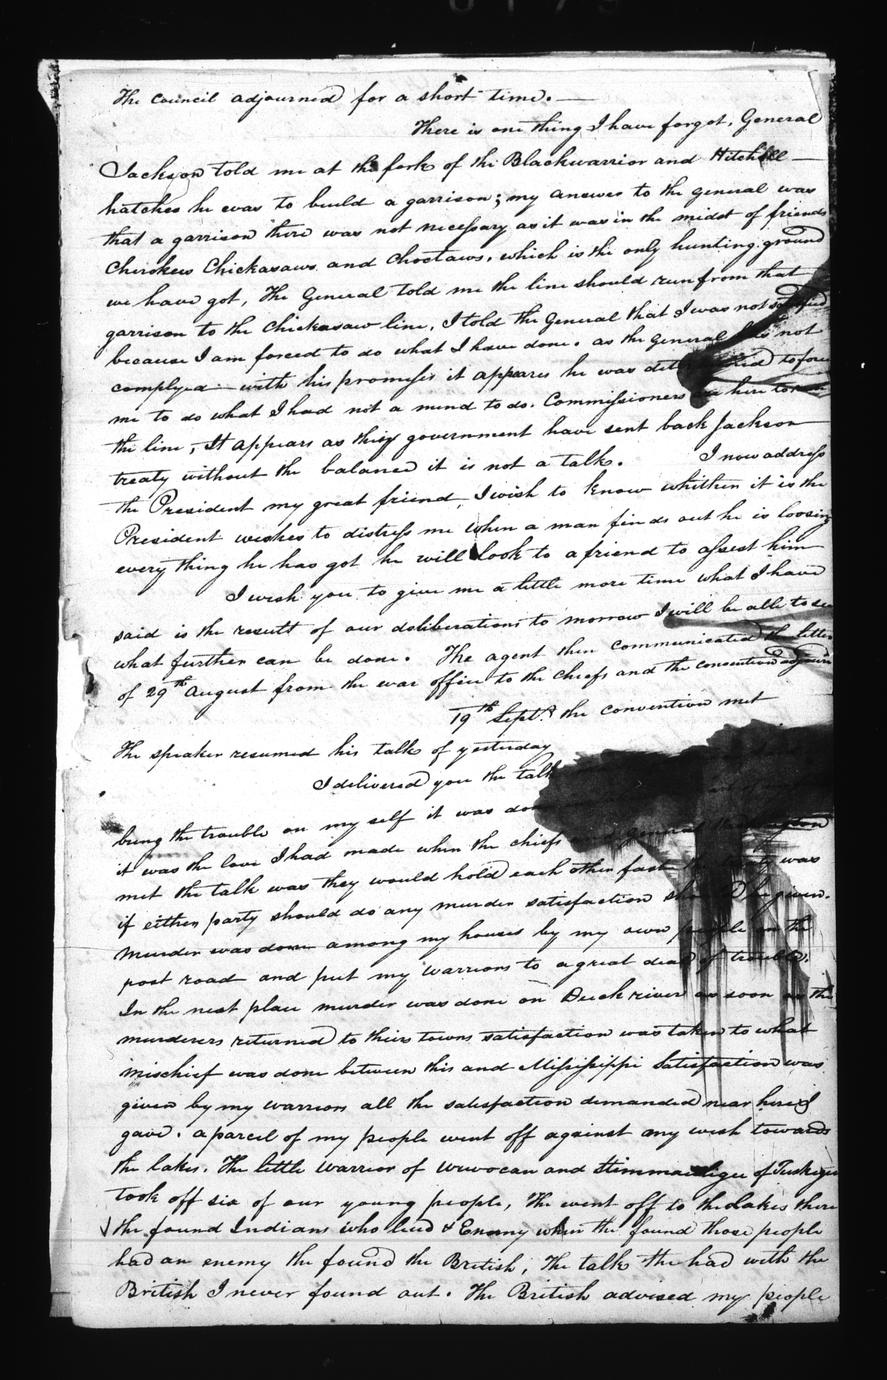 The council adjourned for a short time. —
There is one thing I have forgot, General
Jackson told me at the fork of the Blackwarrior and
hatches he was to build a garrison; my answer to the general was
that a garrison there was not necessary as it was in the midst of friends
Cherokees Chickasaws and Choctaws, which is the only hunting ground
we have got, The General told me the line should run from that
garrison to the Chickasaw line, I told the General that I was not
because I am forced to do what I have done. as the General not
complyed with his promises it appears he was to force
me to do what I had not a mind to do. Commissioners here to run
the line, It appears as they government have sent back Jackson
treaty without the balance it is not a talk. I now address
the President my great friend, I wish to know whither it is the
President wishes to distress me when a man finds out he is loosing
every thing he has got he will look to a friend to assest him
I wish you to give me a little more time what I have
said is the result of our deliberations to morrow I will be able to see
what further can be done. The agent then communicated the letter
of 29th August from the war office to the chiefs and the convention adjourn
19th Sept. the convention met
The speaker resumed his talk of yesterday
I delivered you the talk
bring the trouble on my self it was
it was the love I had made when the chiefs General
met the talk was they would hold each other fast was
if either party should do any murder satisfaction be given.
murder was done among my houses by my own people on the
post road and put my warriors to a great deal of trouble.
In the next place murder was done on Duck river as soon as the
murderers returned to their towns satisfaction was taken to what
mischief was done between this and Missisippi Satisfaction was
given by my warriors all the satisfaction demanded near here I
gave. a parcel of my people went off against any wish towards
the lakes. The little warrior of Wewocau and of Tuskegee
took off six of our young people, The went off to the Lakes there
the found Indians who lied & Enemy when the found those people
had an enemy the found the British, The talk the had with the
British I never found out. The British advised my people